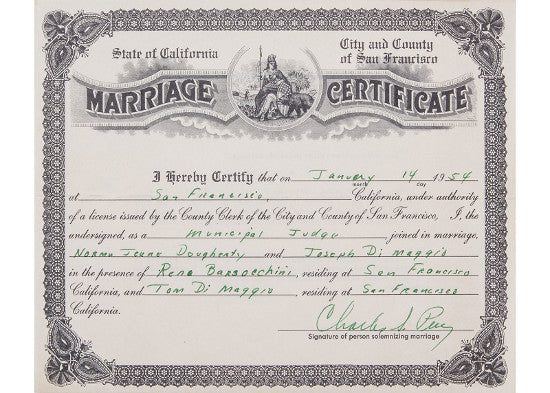 State of California
City and County
of San Francisco
MARRIAGE CERTIFICATE
I Hereby Certify that on January 14 1954
month day
at San Francisco, California, under authority
of a license issued by the County Clerk of the City and County of San Francisco, I, the
undersigned, as a Municipal Judge joined in marriage,
Norma Jeane Dougherty and Joseph Di Maggio
in the presence of Reno Barsocchini, residing at San Francisco
California, and Tom Di Maggio, residing at San Francisco
California.
Charles S. Perry
Signature of person solemnizing marriage